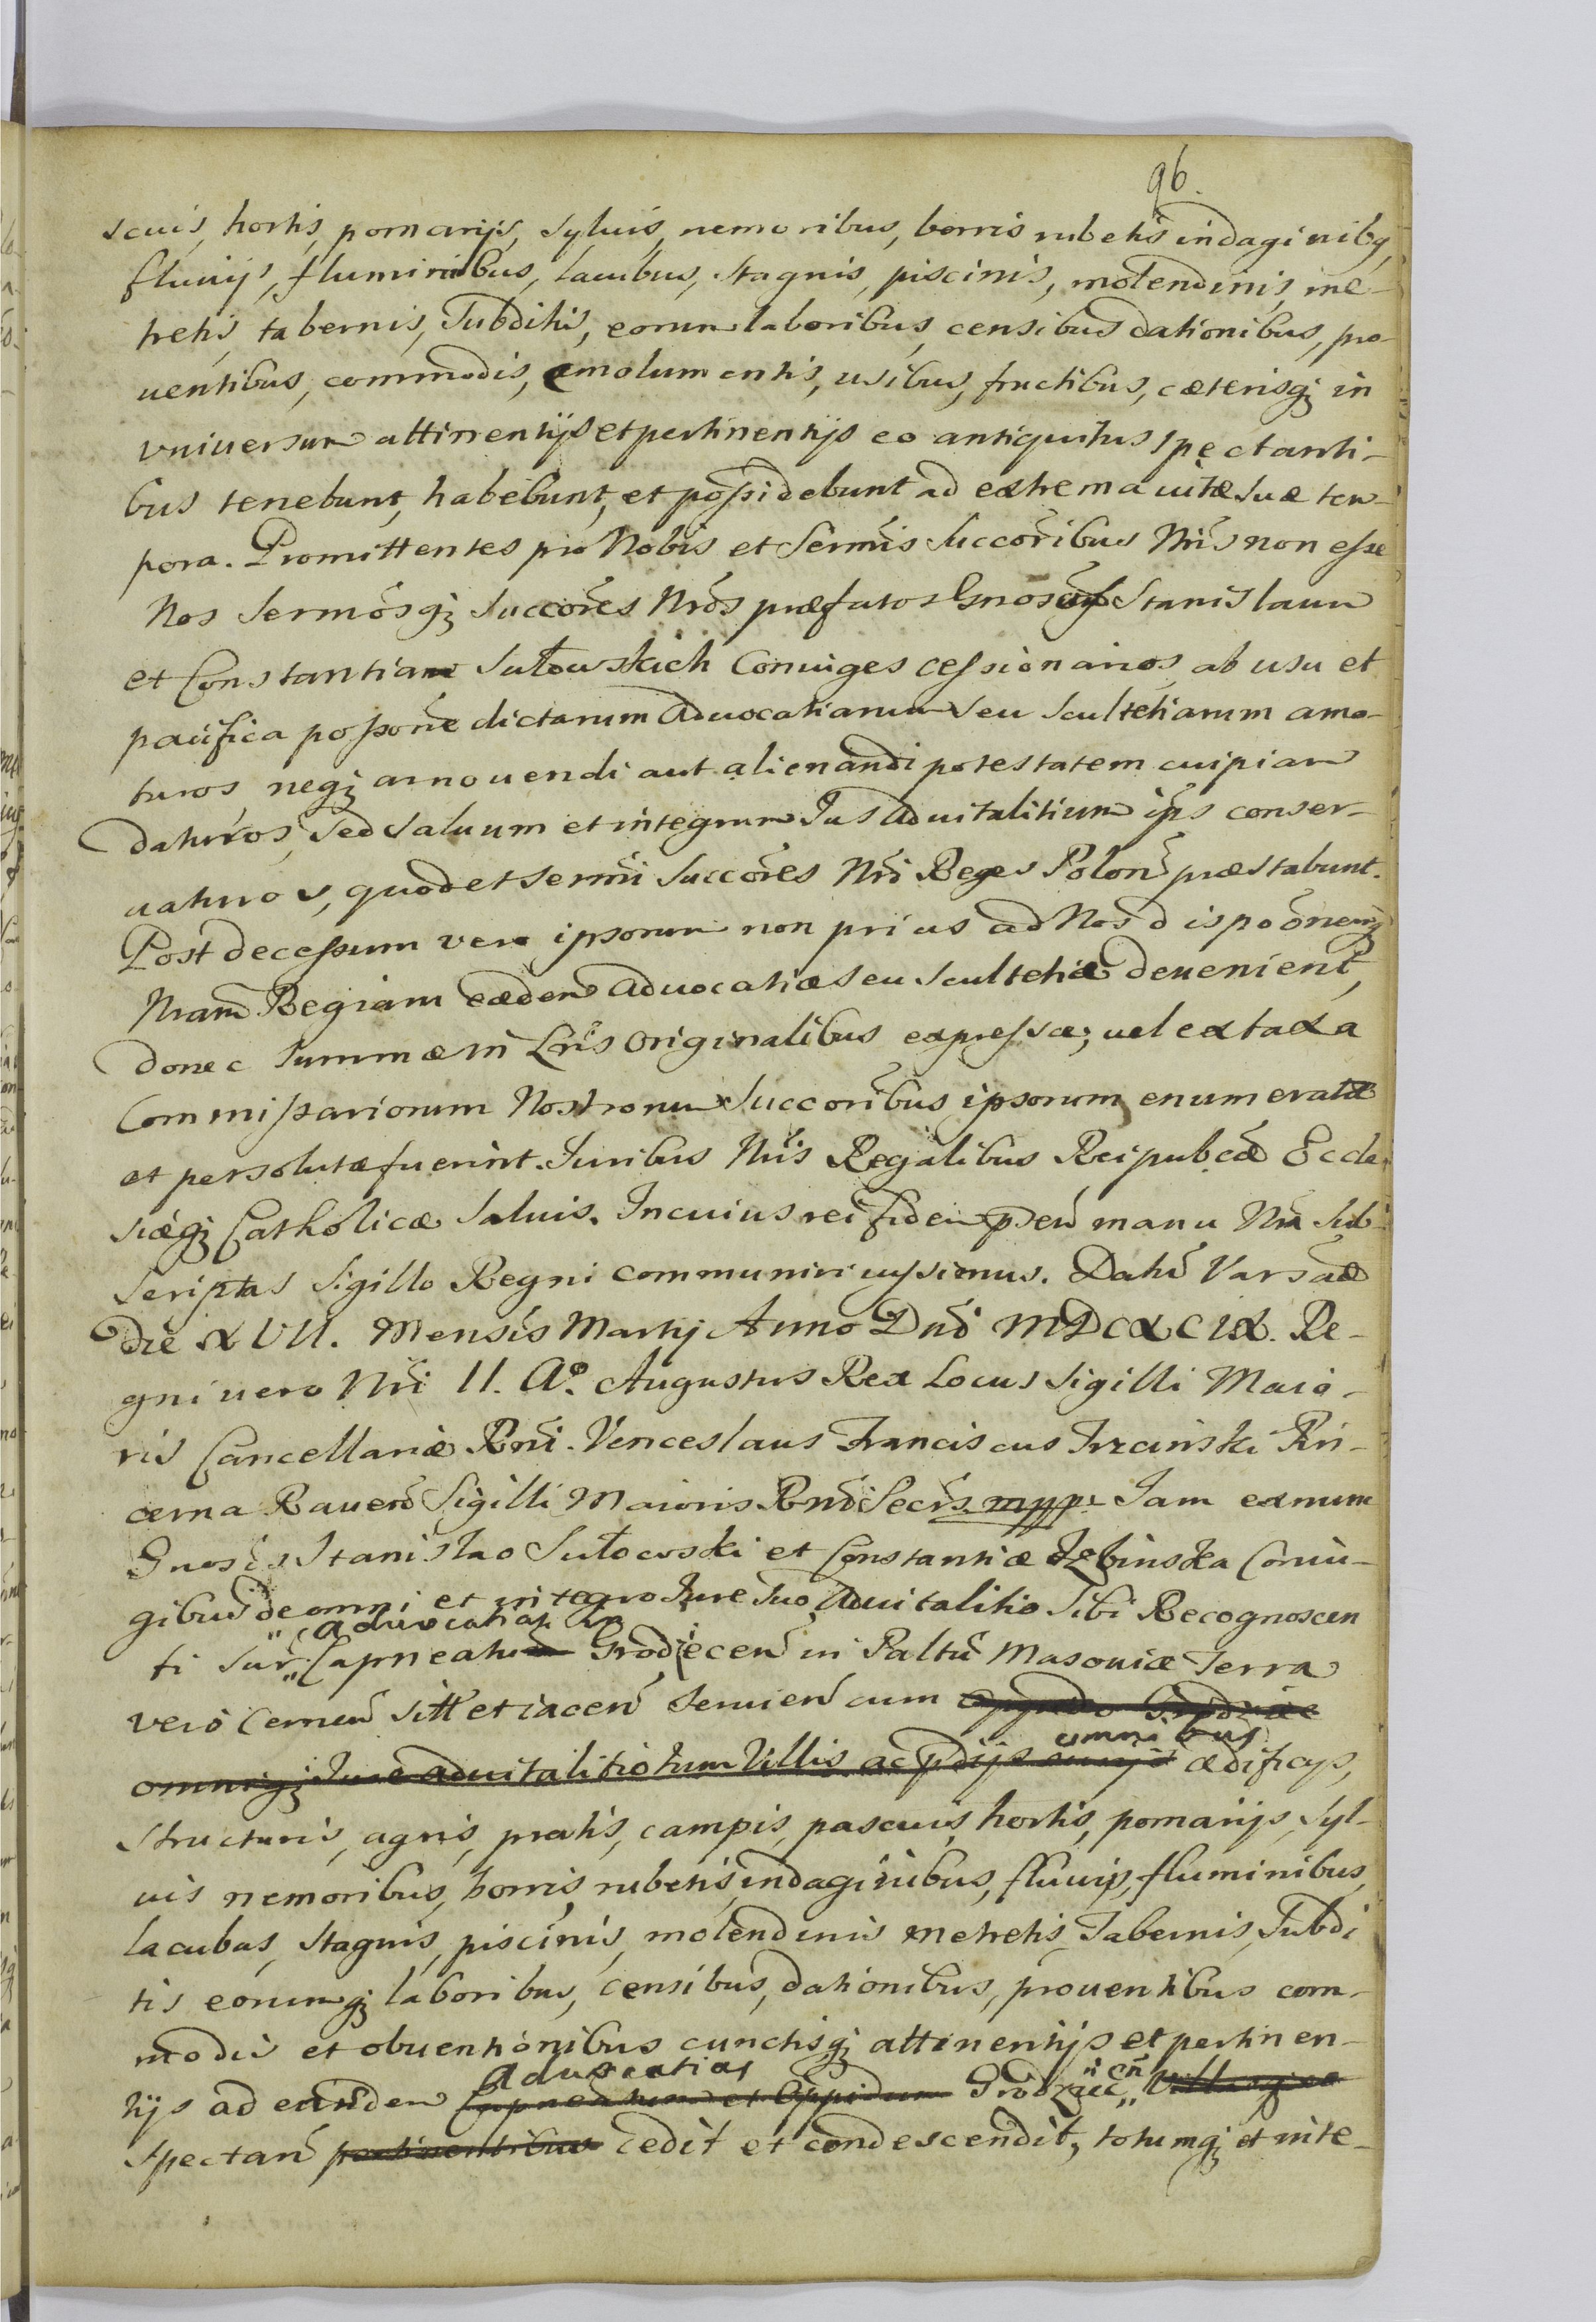 96.
scuis, hortis, pomarijs, syluis, nemoribus, borris rubetis indaginibq,
fluuijs, fluminibus, lacubus, stagnis, piscinis, molendinis, me-
tretis, tabernis, Subditis, eorum laboribus, censibus dationibus, pro-
uentibus, commodis, emolumentis, usibus, fructibus, cæterisq; in
vniuersum attinentijs et pertinentijs eo antiquitus spectanti-
bus tenebunt, habebunt, et possidebunt ad extrema uitæ suæ tem-
pora. Promittentes pro Nobis et Sermis Succoribus Nris non esse
Nos Sermosq; Succores Nros præfatos Gnosos Stanislaum
et Constantiam Sułowskich Coniuges cessionarios, ab usu et
pacifica possone dictarum Aduocatiarum seu Scultetiarum amo-
turos neq; amouendi aut alienandi potestatem cuipiam
daturos, sed saluum et integrum Jus Aduitalitium ips conser-
uaturos, quod et Sermi Succores Nri Reges Polon præstabunt.
Post decessum vero ipsorum non prius ad Nos dispoonemq;
Nram Regiam eædem Aduocatiæ seu Scultetiæ deuenient,
donec Summæ in Lris Originalibus expressæ; uel ex taxa
Commissariorum Nostrorum Succoribus ipsorum enumeratæ
et persolutæ fuerint. Juribus Nris Regalibus Reipubcæ Eccle-
siæq; Catholicæ saluis. In cuius rei fidem pnsen manu Nra sub-
scriptas Sigillo Regni communiri iussimus. Datu Varsaæ
die XVII. Mensis Martij Anno Dni MDCXCIX. Re-
gni uero Nri II. Aº. Augustus Rex Locus Sigilli Maio-
ris Cancellariæ Rni. Venceslaus Franciscus Trzcinski Pin-
cerna Rauen Sigilli Maioris Rni Secrs mpp. Jam ex nunc
Gnosis Stanislao Sułowski et Constantiæ Coniu-
gibus de omni et integro Jure suo Aduitalitio Sibi Recognoscen
aduocatiae
ti Sur Capneatu Grodziecen in Paltu Masouiæ Terra
vero Cernen Sitt et iacen Seruien cum oppido Grodziec
omnibus
omniq; Jure aduitalitio tum Villis ac prdijs ædificys,
structuris, agris, pratis, campis, pascuis, hortis, pomarijs, syl-
uis nemoribus, borris, rubetis, indaginibus, fluuijs, fluminibus,
lacubus, stagnis, piscinis, molendinis metretis, Tabernis, Subdi
tis eorumq; laboribus, censibus, dationibus, prouentibus com-
modis et obuentionibus cunctisq; attinentijs et pertinen-
Aduocatias
tijs ad eundem Capneatum et Oppidum Grodziec
spectan pertinentibus cedit et condescendit, totumq; et inte-